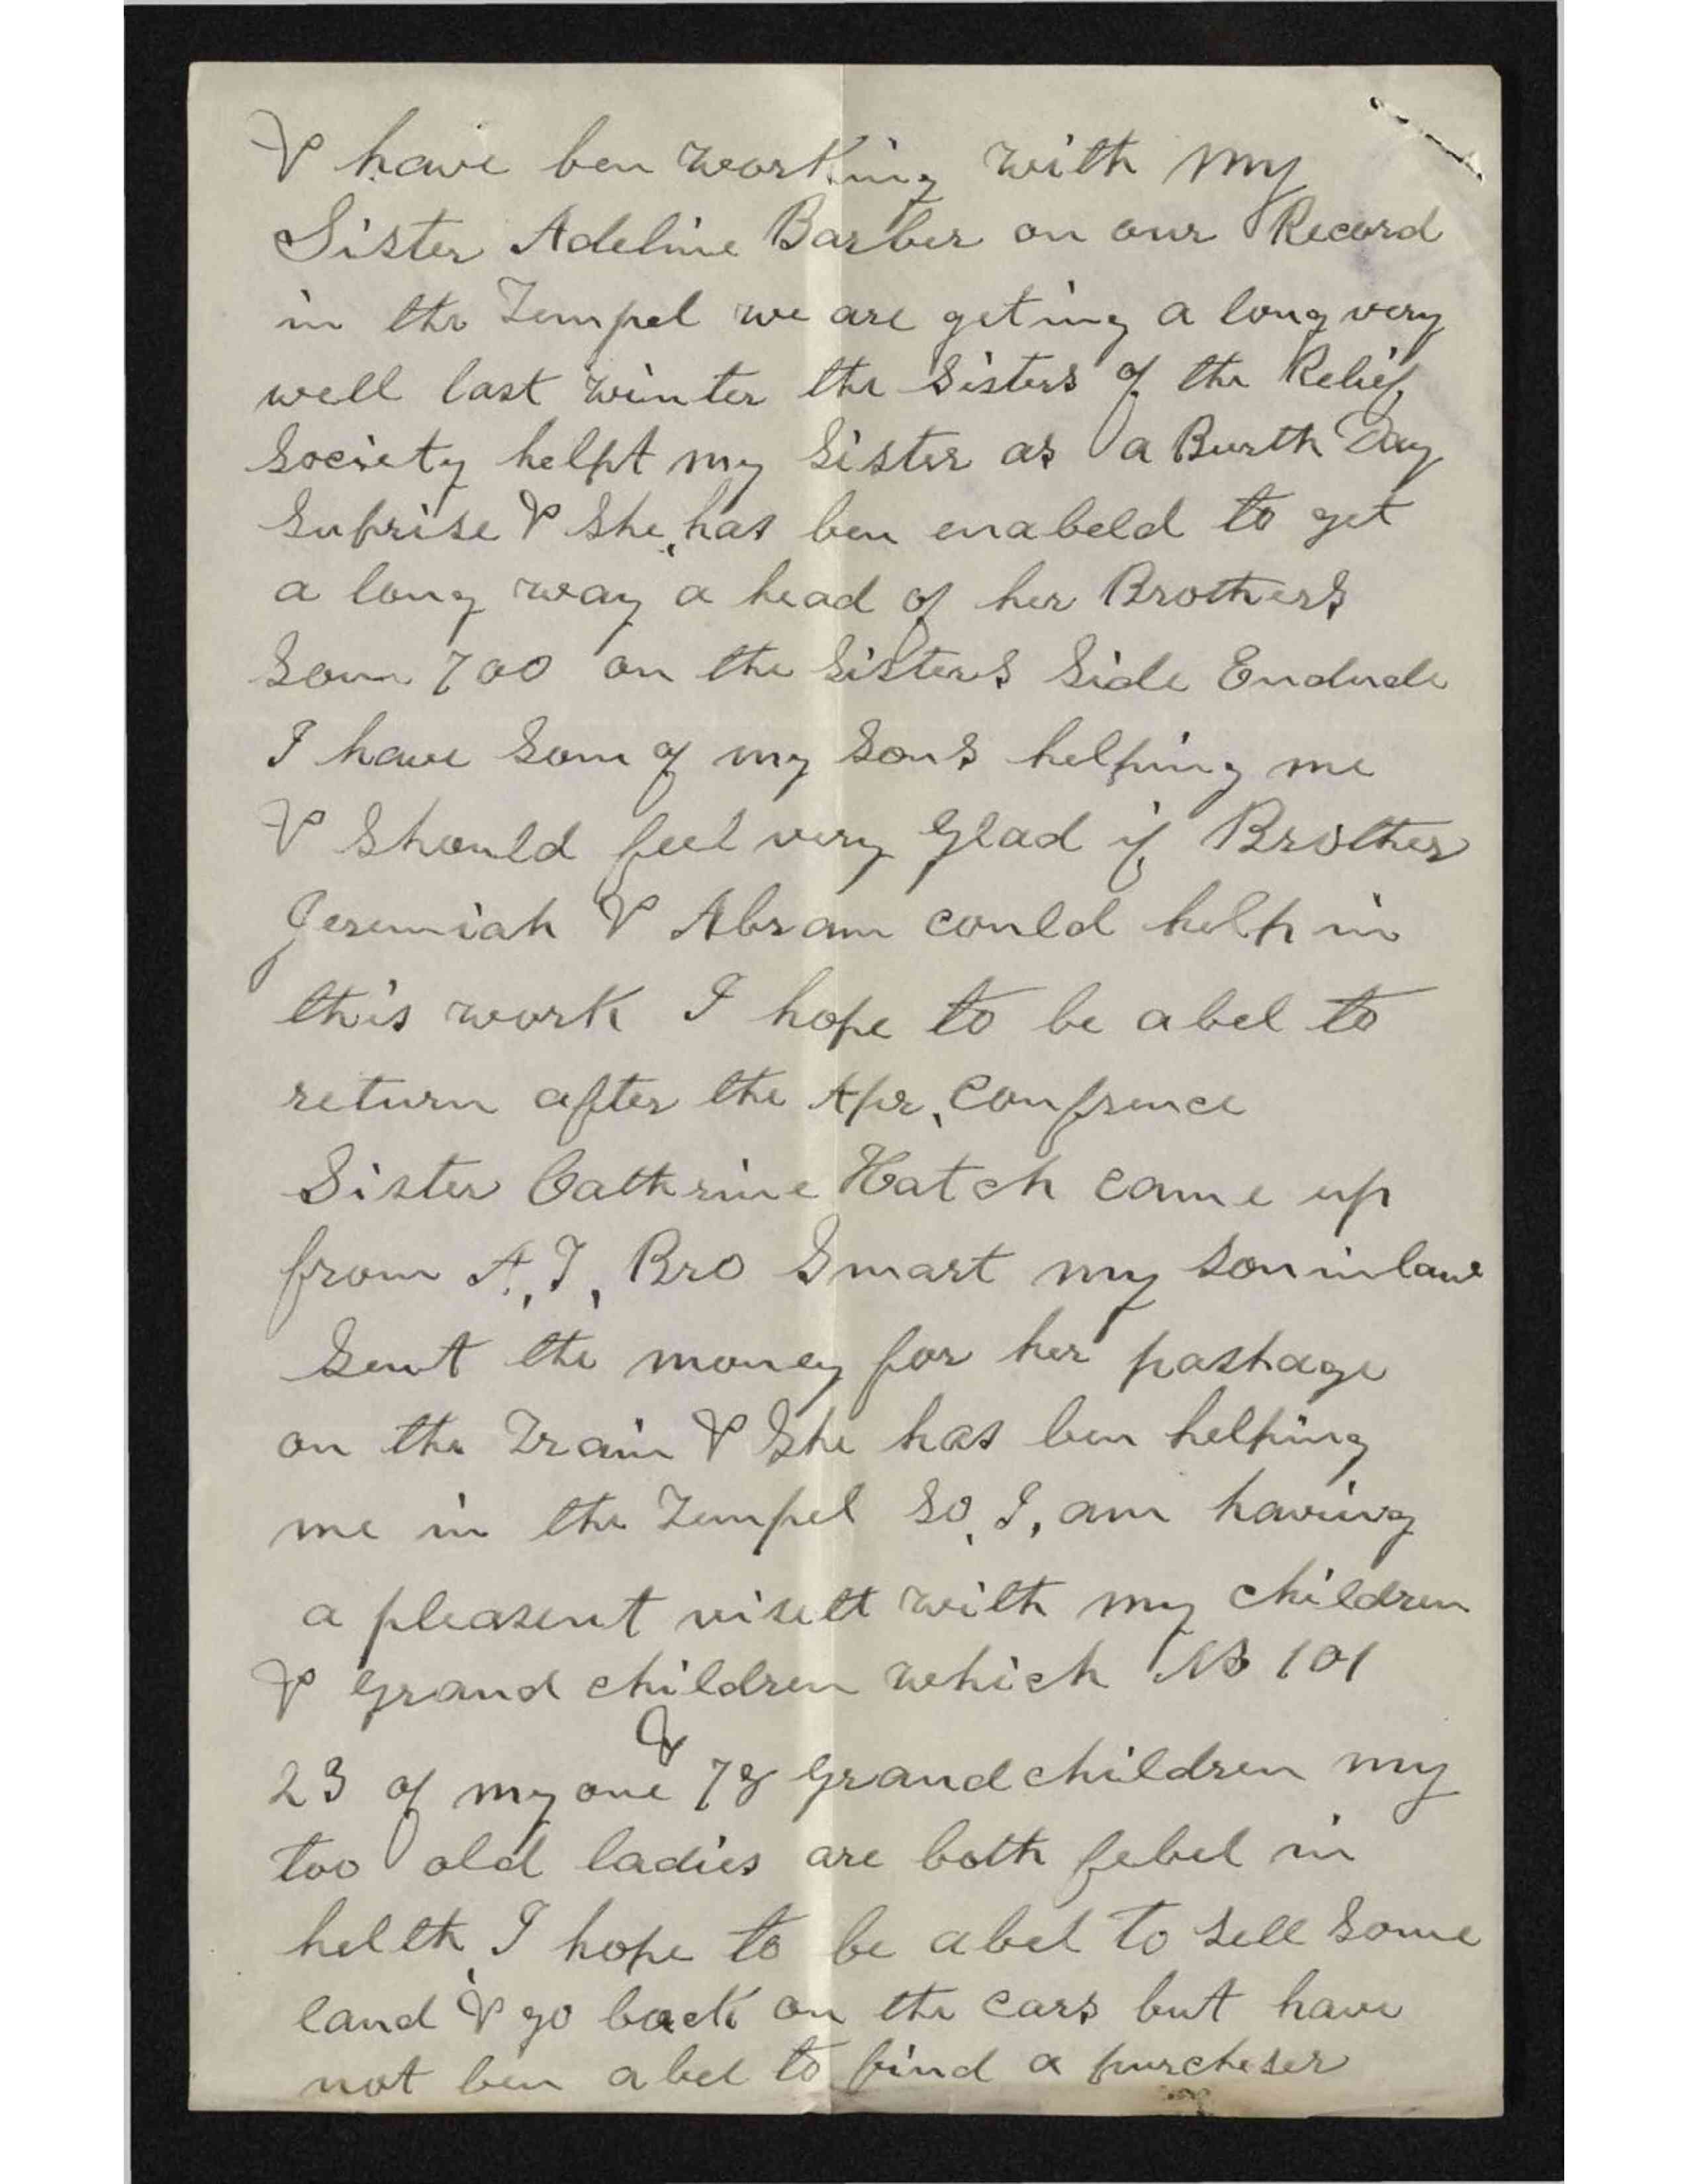 & have ben working with my
Sister Adeline Barber on our Record
in the Tempel we are geting a long very
well last winter the Sisters of the Relief
Society helpt my Sister as a Burth Day
Suprise & She, has ben enabeld to get
a long way a head of her Brothers
Som 700 on the Sisters Side Endude
I have Som of my Sons helping me
& Should feel very Glad if Brother
Jeremiah & Abram could help in
this work I hope to be abel to
return after the Apr, Confrence
Sister Cathrine Hatch came up
from A, T, Bro Smart my Son in law
Sent the money for her pashage
on the Train & She has ben helping
me in the Tempel So, I, am having
a pleasent viset with my children
& Grand children which No 101
23 of my one & 78 Grand children my
too old ladies are both febel in
helth, I hope to be abel to Sell Some
land & go back on the cars but have
not ben abel to find a purcheser